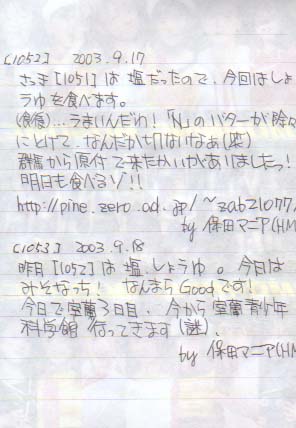 [1052] 2003.9.17
さっき[1051]は塩だったので、今回はしょ
うゆを食べます。
(食後)…うまいんだわ!「N」のバターが徐々
にとけて、なんだか切ないなぁ(笑)
群馬から原付で来たかいがありましたっ!
明日も食べるゾ!!
http://pine.zero.ad.jp/~zab21077/
by 保田マニア(HM
[1053] 2003.9.18
昨日[1052]は塩、しょうゆ。今日は
みそなっち! なんまらGoodです!
今日で室蘭3日目、今から室蘭青少年
科学館 行ってきます(謎)、
by 保田マニア(HM